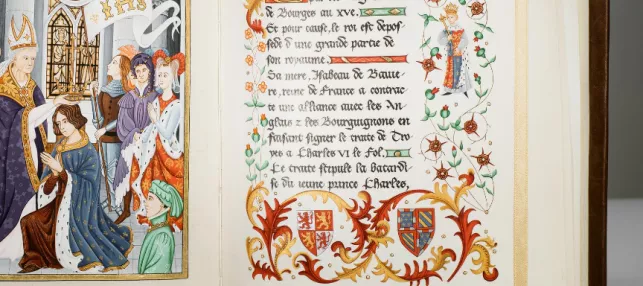 IHS
de Bourges au xve.
Et pour cause, le roi est depos-
sede d'une grande partie de
son royaume.
Sa mere, Isabeau de Baui-
re, reine de France a contrac-
te une alliance avec les An-
glais z les Bourguignons en
faisant signer le traite de Tro
yes a Charles VI le Fol.
Ce traite stipule la batardi-
se du jeune prince Charles,